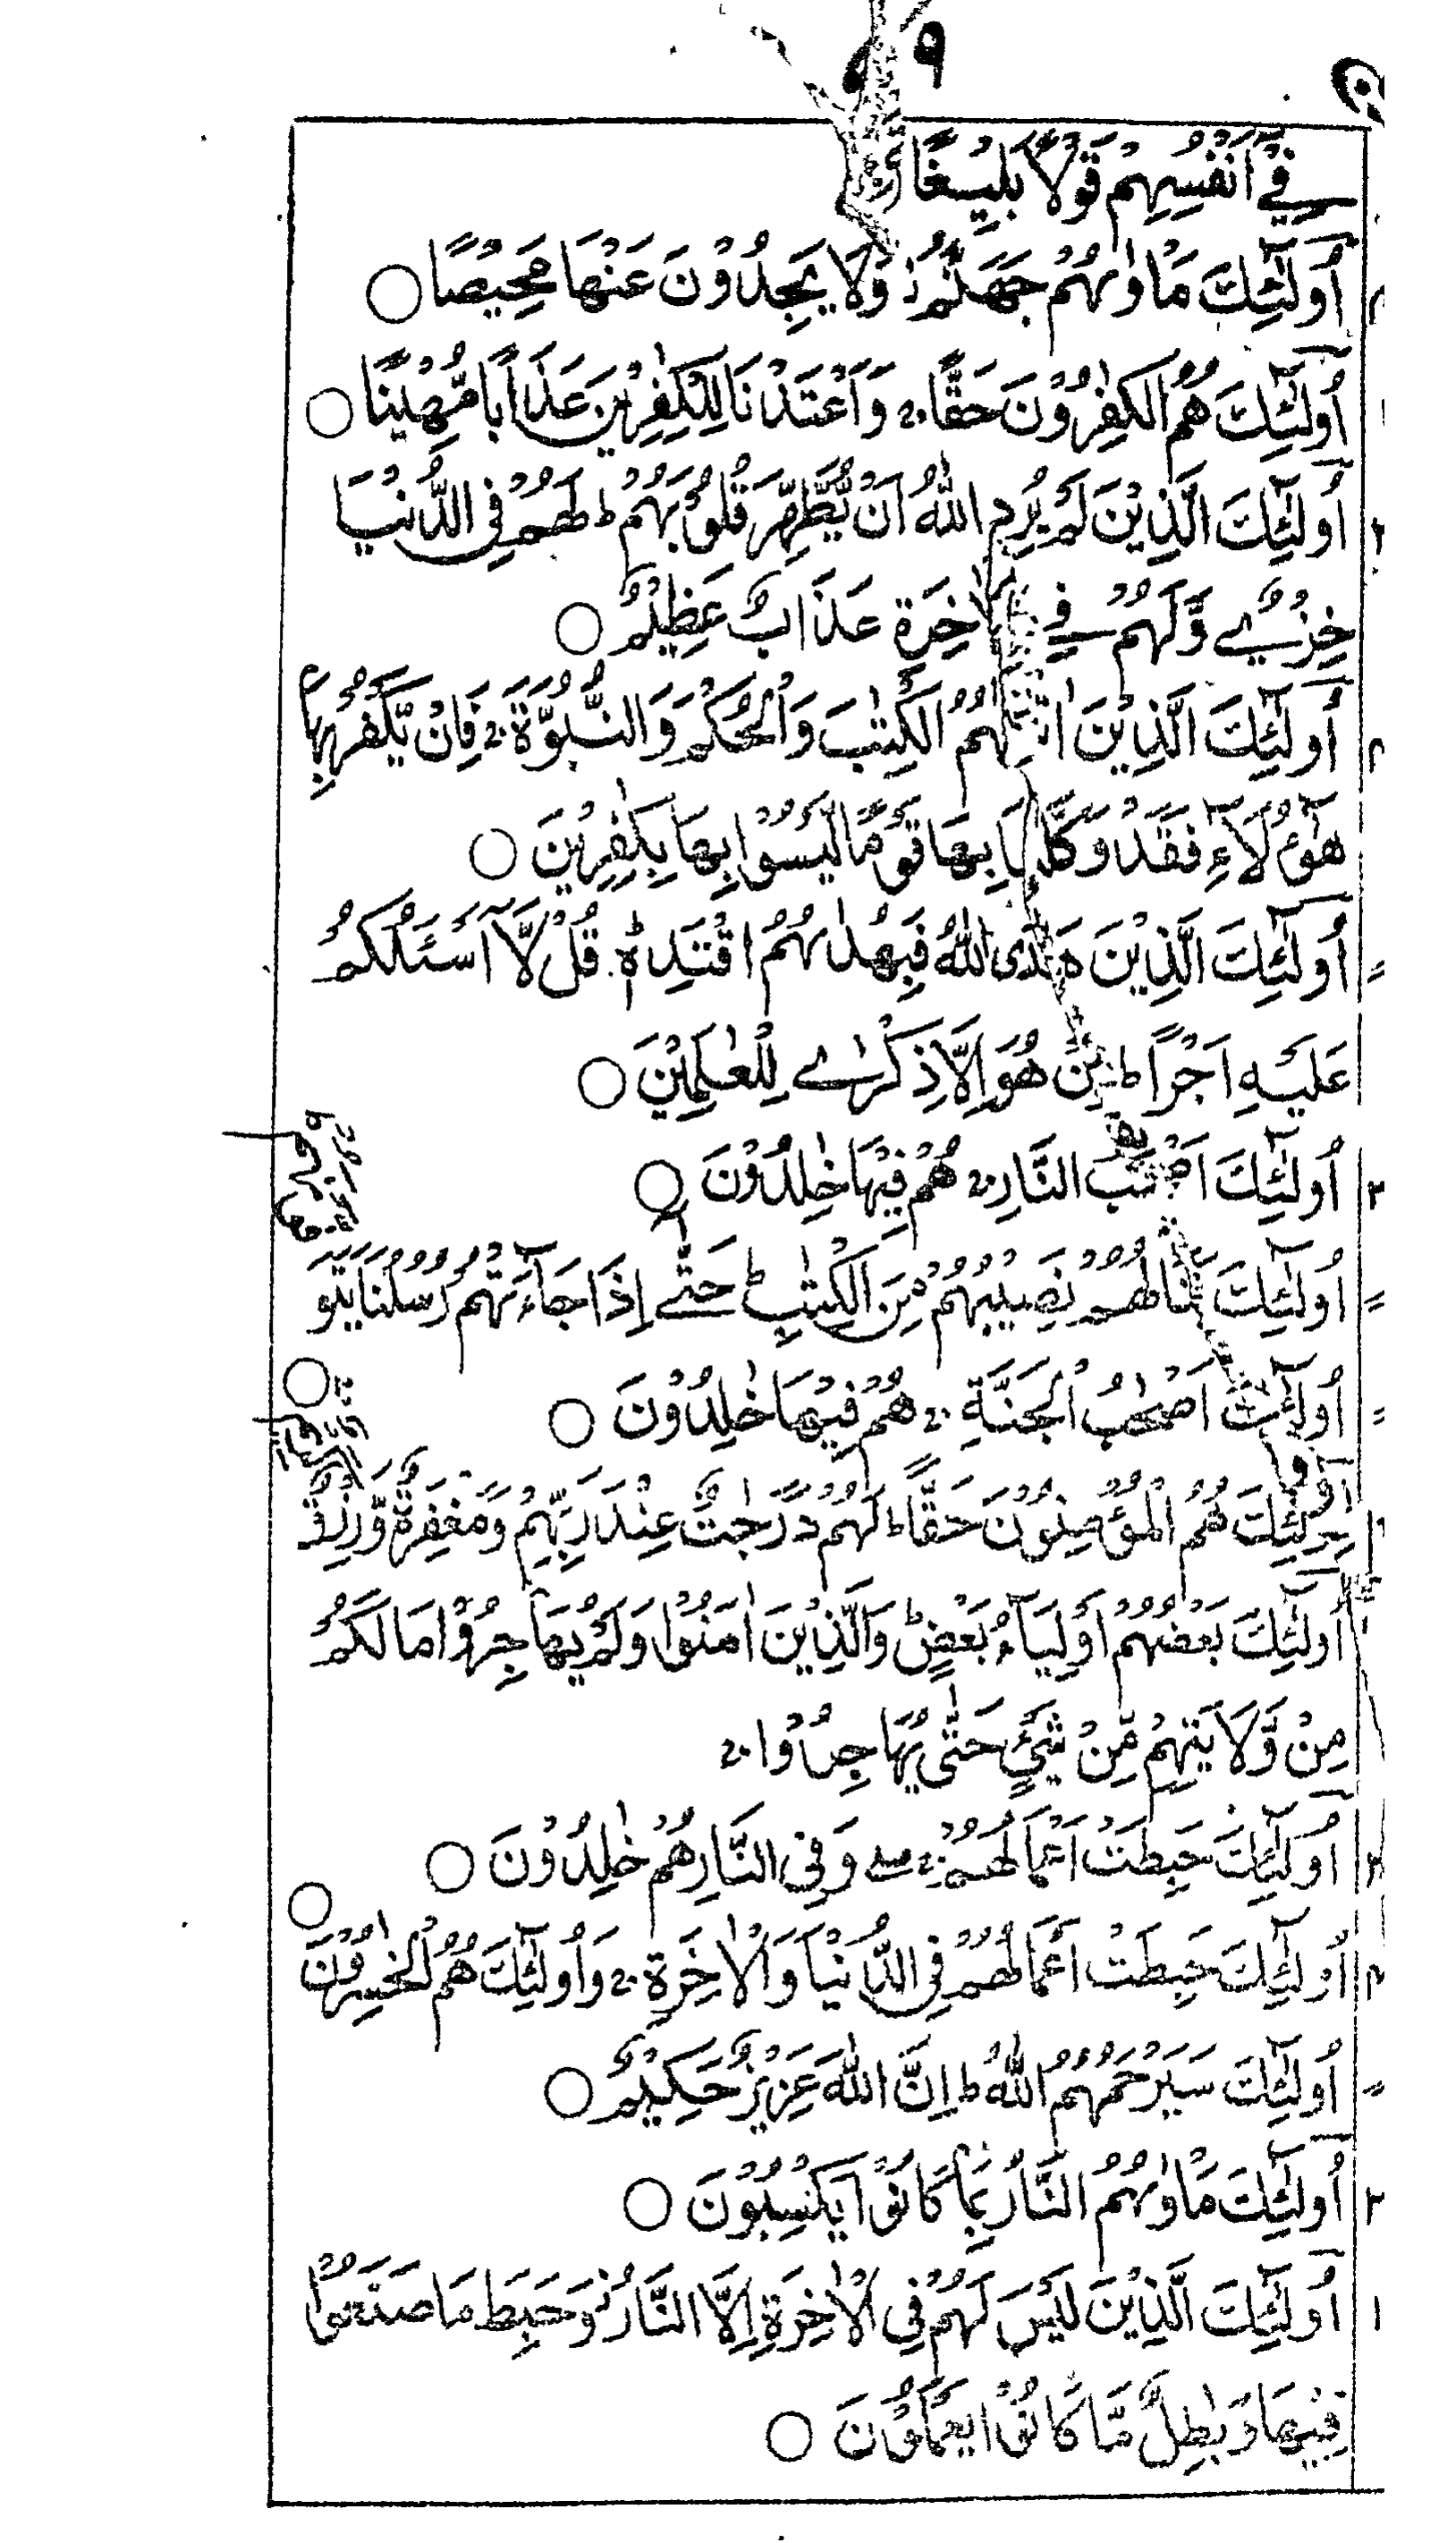 فِيْٓ اَنْفُسِهِمْ قَوْلًاۢ بَلِيْغًا
اُولٰٓئِكَ مَاْوٰىهُمْ جَهَنَّمُ ز وَلَا يَجِدُوْنَ عَنْهَا مَحِيْصًا ○
اُولٰٓئِكَ هُمُ الْكٰفِرُوْنَ حَقًّا ج وَاَعْتَدْنَا لِلْكٰفِرِيْنَ عَذَابًا مُّهِيْنًا ○
اُولٰٓئِكَ الَّذِيْنَ لَمْ يُرِدِ اللّٰهُ اَنْ يُّطَهِّرَ قُلُوْبَهُمْ ط لَهُمْ فِى الدُّنْيَا
خِزْيٌ وَّلَهُمْ فِي الْاٰخِرَةِ عَذَابٌ عَظِيْمٌ ○
اُولٰٓئِكَ الَّذِيْنَ اٰتَيْنٰهُمُ الْكِتٰبَ وَالْحُكْمَ وَالنُّبُوَّةَ ج فَاِنْ يَّكْفُرْ بِهَا
هٰٓؤُلَآءِ فَقَدْ وَكَّلْنَا بِهَا قَوْمًا لَّيْسُوْا بِهَا بِكٰفِرِيْنَ ○
اُولٰٓئِكَ الَّذِيْنَ هَدَى اللّٰهُ فَبِهُدٰىهُمُ اقْتَدِهْ ط قُلْ لَّآ اَسْئَلُكُمْ
عَلَيْهِ اَجْرًا ط اِنْ هُوَ اِلَّا ذِكْرٰى لِلْعٰلَمِيْنَ ○
اُولٰٓئِكَ اَصْحٰبُ النَّارِ ج هُمْ فِيْهَا خٰلِدُوْنَ ○
اُولٰٓئِكَ يَنَالُهُمْ نَصِيْبُهُمْ مِّنَ الْكِتٰبِ ط حَتّٰى اِذَا جَآءَتْهُمْ رُسُلُنَا يَتَوَ
اُولٰٓئِكَ اَصْحٰبُ الْجَنَّةِ ج هُمْ فِيْهَا خٰلِدُوْنَ ○
اُولٰٓئِكَ هُمُ الْمُؤْمِنُوْنَ حَقًّا ط لَهُمْ دَرَجٰتٌ عِنْدَ رَبِّهِمْ وَمَغْفِرَةٌ وَّرِزْقٌ
اُولٰٓئِكَ بَعْضُهُمْ اَوْلِيَآءُ بَعْضٍ ط وَالَّذِيْنَ اٰمَنُوْا وَلَمْ يُهَاجِرُوْا مَا لَكُمْ
مِنْ وَّلَايَتِهِمْ مِّنْ شَيْءٍ حَتّٰى يُهَاجِرُوْا ج
اُولٰٓئِكَ حَبِطَتْ اَعْمَالُهُمْ ج صلے وَفِى النَّارِ هُمْ خٰلِدُوْنَ ○
اُولٰٓئِكَ حَبِطَتْ اَعْمَالُهُمْ فِى الدُّنْيَا وَالْاٰخِرَةِ ج وَاُولٰٓئِكَ هُمُ الْخٰسِرُوْنَ ○
اُولٰٓئِكَ سَيَرْحَمُهُمُ اللّٰهُ ط اِنَّ اللّٰهَ عَزِيْزٌ حَكِيْمٌ ○
اُولٰٓئِكَ مَاْوٰىهُمُ النَّارُ بِمَا كَانُوْا يَكْسِبُوْنَ ○
اُولٰٓئِكَ الَّذِيْنَ لَيْسَ لَهُمْ فِى الْاٰخِرَةِ اِلَّا النَّارُ ز وَحَبِطَ مَا صَنَعُوْا
فِيْهَا وَبٰطِلٌ مَّا كَانُوْا يَعْمَلُوْنَ ○